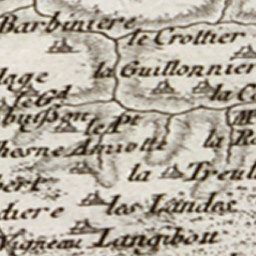 Barbiniere
le Crottier
la Guillonnier
lage
le Gd
la Co
buisson
le Pt
M
hesne Amiott
la R
la Treul
bert
diere
les Landes
Vigneau
Langibou